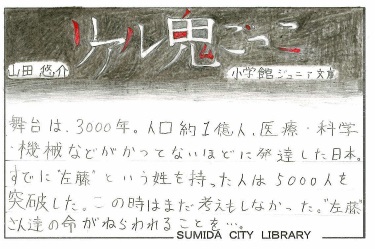 リアル鬼ごっこ
山田悠介
小学館ジュニア文庫
舞台は、3000年。人口約1億人、医療・科学
・機械などがかつてないほどに発達した日本。
すでに"左藤"という姓を持った人は5000人を
突破した。この時はまだ考えもしなかった。"左藤"
さん達の命がねらわれることを…。
SUMIDA CITY LIBRARY